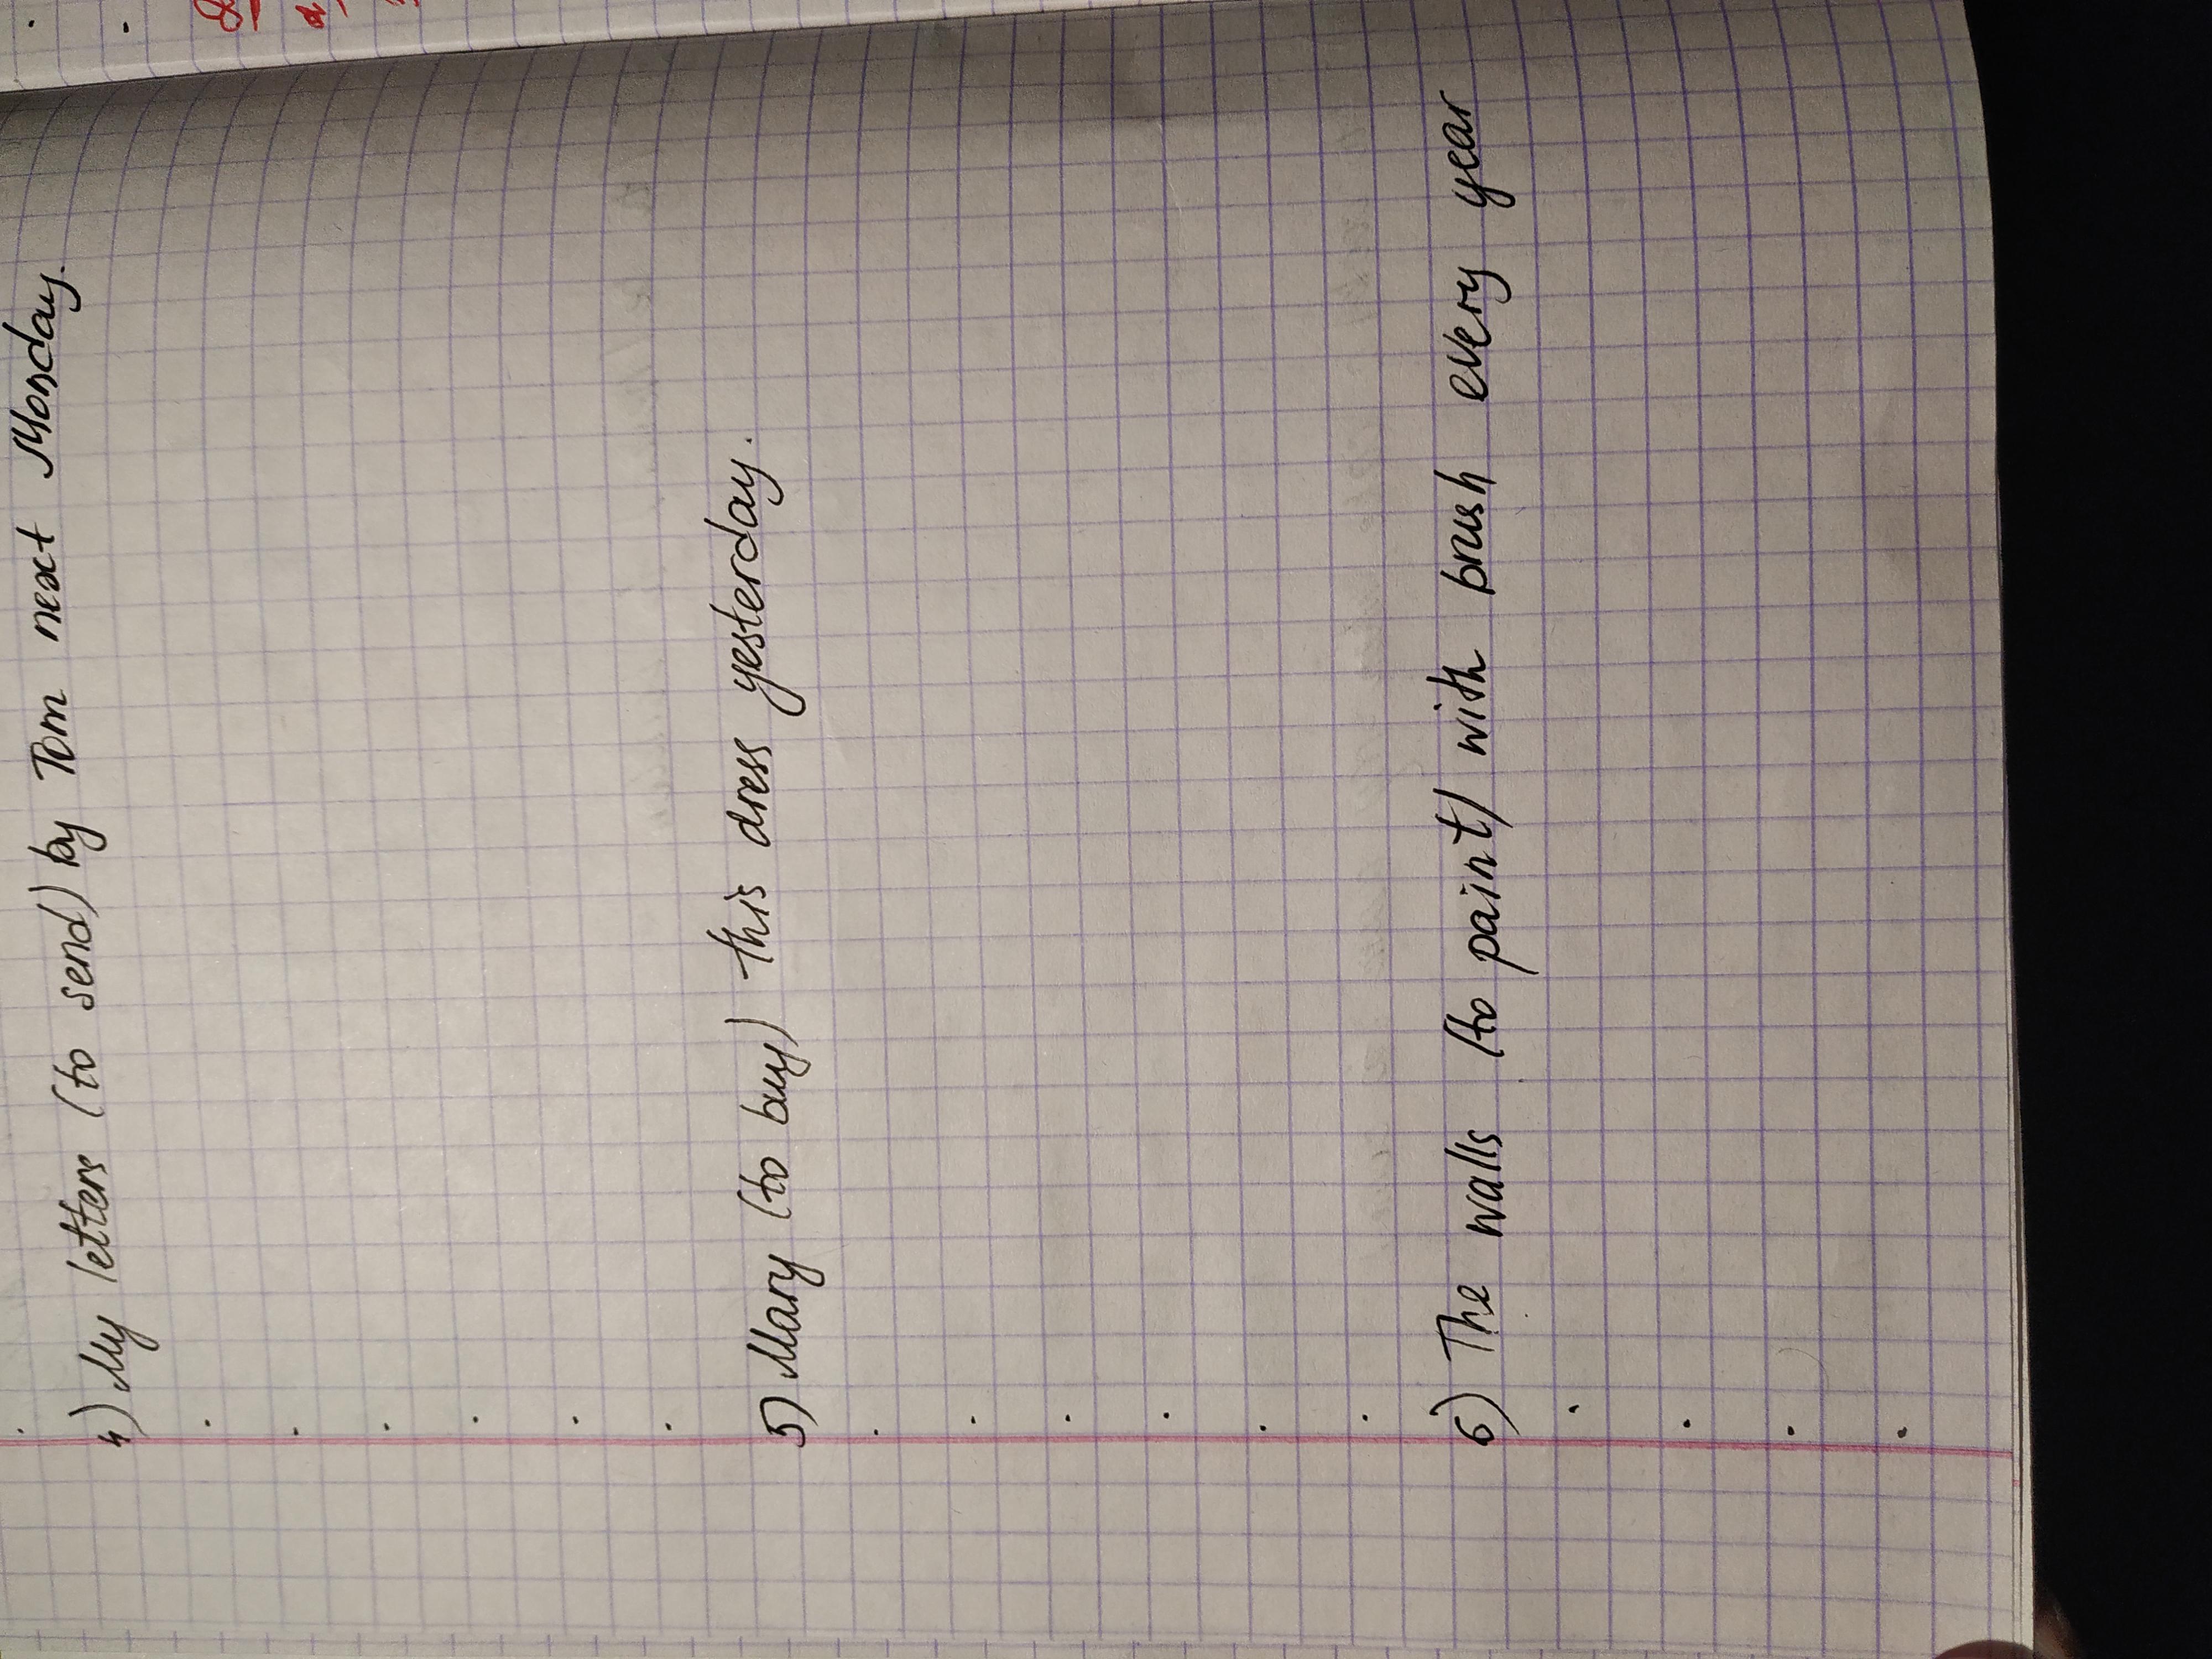 4) My letters (to send) by Tom next Monday.
5) Mary (to buy) this dress yesterday.
6) The walls (to paint) with brush every year